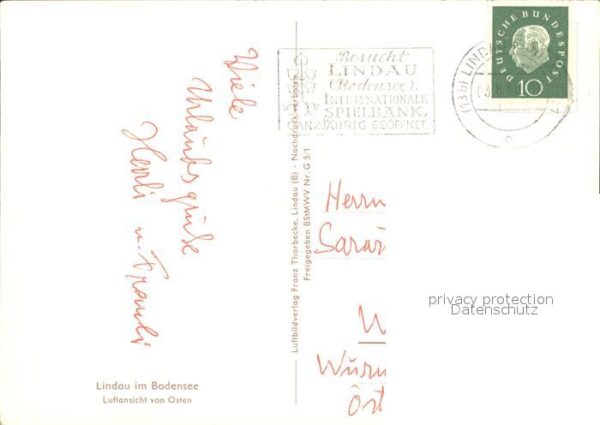 Viele
Urlaubsgrüße
Lindau im Bodensee
Luftansicht von Osten
Luftbildverlag Franz Thorbecke, Lindau (B) · Nachdruck verboten
Freigegeben BStMWV Nr. G 5/1
Besucht
LINDAU
(Bodensee),
INTERNATIONALE
SPIELBANK,
GANZJÄHRIG GEÖFFNET.
LINDAU
DEUTSCHE BUNDESPOST
10
Herrn
privacy protection
Datenschutz